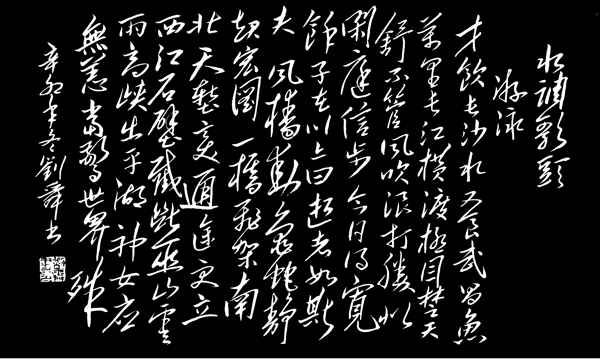 水調歌頭
游泳
才飲長沙水又食武昌魚
萬里長江橫渡極目楚天
舒不管風吹浪打勝似
閑庭信步今日得寬
餘子在川上曰逝者如斯
夫風檣動龜蛇靜
起宏圖一橋飛架南
北天塹變通途更立
西江石壁截斷巫山雲
雨高峽出平湖神女應
無恙當驚世界殊
辛卯年冬劉書